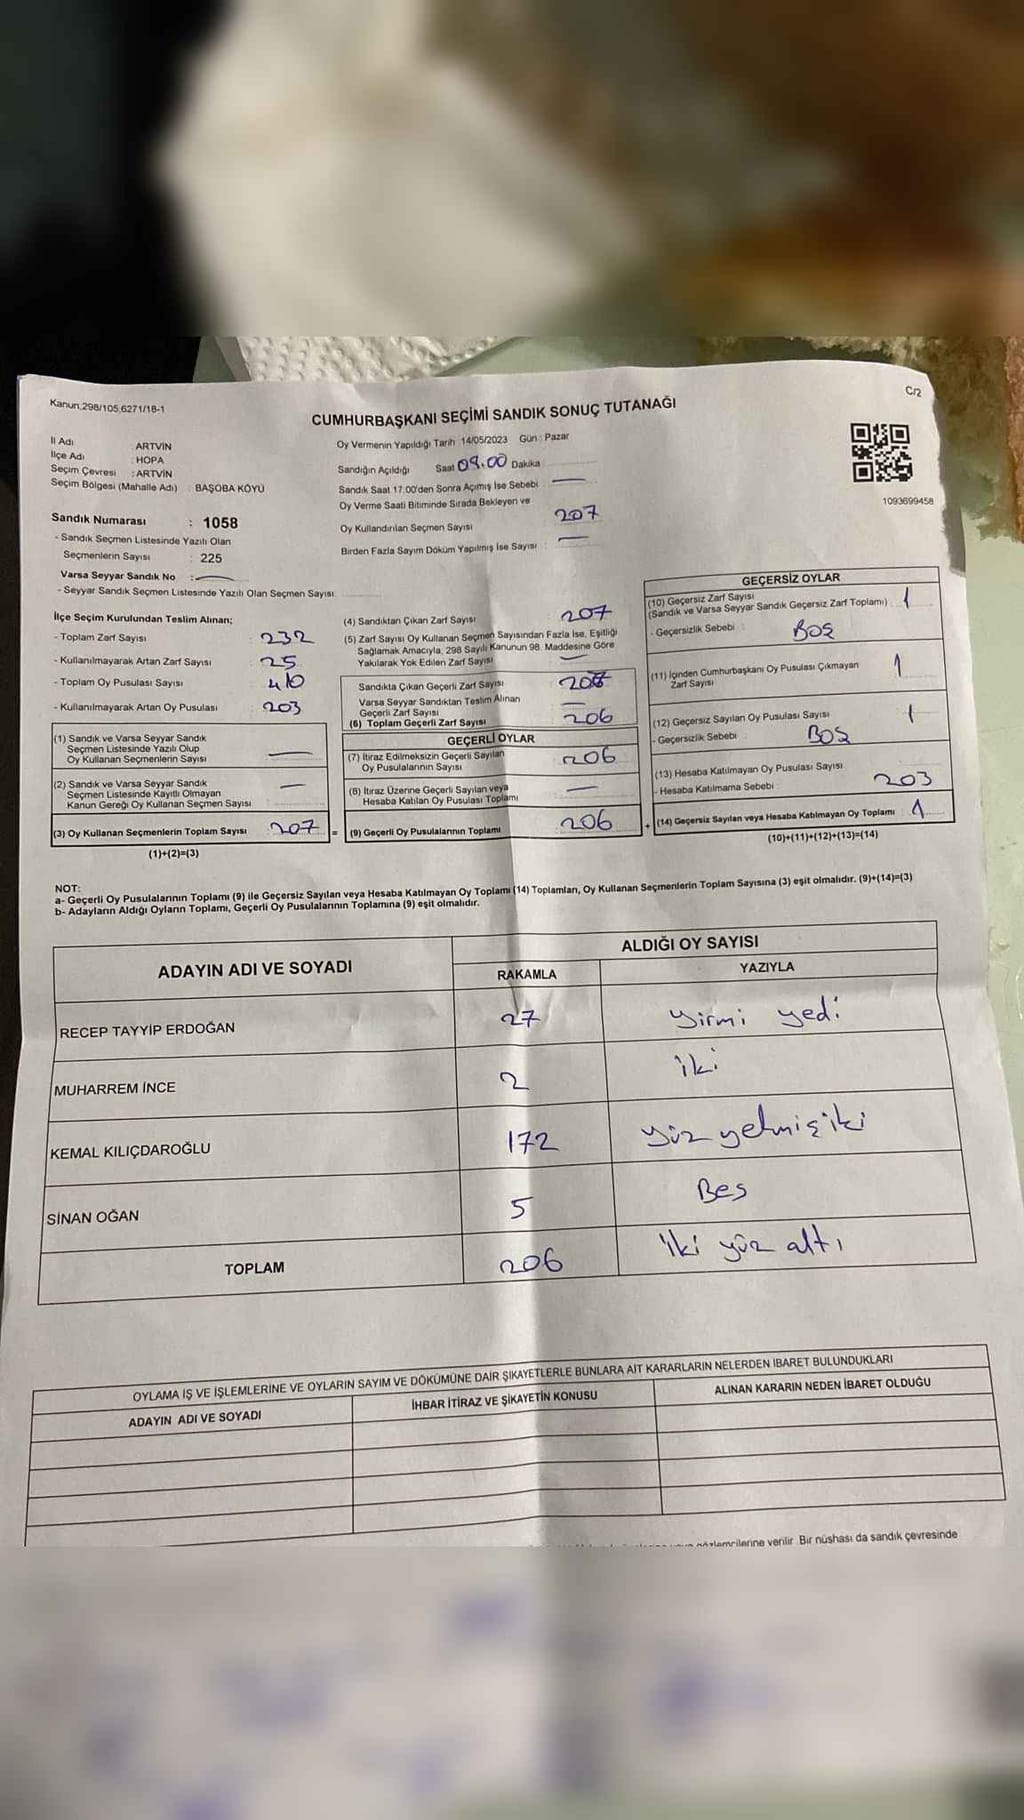 Kanun;298/105,6271/18-1
C/2
CUMHURBAŞKANI SEÇİMİ SANDIK SONUÇ TUTANAĞI
İl Adı : ARTVİN
İlçe Adı : HOPA
Seçim Çevresi : ARTVİN
Seçim Bölgesi (Mahalle Adı) : BAŞOBA KÖYÜ
Oy Vermenin Yapıldığı Tarih 14/05/2023 Gün : Pazar
Sandığın Açıldığı Saat 08.00 Dakika
Sandık Saat 17.00'den Sonra Açımış İse Sebebi : —
Oy Verme Saati Bitiminde Sırada Bekleyen ve
Oy Kullandırılan Seçmen Sayısı 207
Birden Fazla Sayım Döküm Yapılmış İse Sayısı : —
1093699458
Sandık Numarası : 1058
- Sandık Seçmen Listesinde Yazılı Olan
Seçmenlerin Sayısı : 225
Varsa Seyyar Sandık No : —
- Seyyar Sandık Seçmen Listesinde Yazılı Olan Seçmen Sayısı:
İlçe Seçim Kurulundan Teslim Alınan;
- Toplam Zarf Sayısı : 232
- Kullanılmayarak Artan Zarf Sayısı : 25
- Toplam Oy Pusulası Sayısı : 410
- Kullanılmayarak Artan Oy Pusulası : 203
(1) Sandık ve Varsa Seyyar Sandık
Seçmen Listesinde Yazılı Olup
Oy Kullanan Seçmenlerin Sayısı —
(2) Sandık ve Varsa Seyyar Sandık
Seçmen Listesinde Kayıtlı Olmayan
Kanun Gereği Oy Kullanan Seçmen Sayısı —
(3) Oy Kullanan Seçmenlerin Toplam Sayısı 207 =
(1)+(2)=(3)
(4) Sandıktan Çıkan Zarf Sayısı : 207
(5) Zarf Sayısı Oy Kullanan Seçmen Sayısından Fazla İse, Eşitliği
Sağlamak Amacıyla, 298 Sayılı Kanunun 98. Maddesine Göre
Yakılarak Yok Edilen Zarf Sayısı —
Sandıkta Çıkan Geçerli Zarf Sayısı 206
Varsa Seyyar Sandıktan Teslim Alınan
Geçerli Zarf Sayısı —
(6) Toplam Geçerli Zarf Sayısı 206
GEÇERLİ OYLAR
(7) İtiraz Edilmeksizin Geçerli Sayılan
Oy Pusulalarının Sayısı 206
(8) İtiraz Üzerine Geçerli Sayılan veya
Hesaba Katılan Oy Pusulası Toplamı —
(9) Geçerli Oy Pusulalarının Toplamı 206 +
GEÇERSİZ OYLAR
(10) Geçersiz Zarf Sayısı
(Sandık ve Varsa Seyyar Sandık Geçersiz Zarf Toplamı) : 1
- Geçersizlik Sebebi : BOŞ
(11) İçinden Cumhurbaşkanı Oy Pusulası Çıkmayan
Zarf Sayısı 1
(12) Geçersiz Sayılan Oy Pusulası Sayısı 1
- Geçersizlik Sebebi : BOŞ
(13) Hesaba Katılmayan Oy Pusulası Sayısı
- Hesaba Katılmama Sebebi : 203
(14) Geçersiz Sayılan veya Hesaba Katılmayan Oy Toplamı 1
(10)+(11)+(12)+(13)=(14)
NOT:
a- Geçerli Oy Pusulalarının Toplamı (9) ile Geçersiz Sayılan veya Hesaba Katılmayan Oy Toplamı (14) Toplamları, Oy Kullanan Seçmenlerin Toplam Sayısına (3) eşit olmalıdır. (9)+(14)=(3)
b- Adayların Aldığı Oyların Toplamı, Geçerli Oy Pusulalarının Toplamına (9) eşit olmalıdır.
ADAYIN ADI VE SOYADI
ALDIĞI OY SAYISI
RAKAMLA YAZIYLA
RECEP TAYYİP ERDOĞAN 27 yirmi yedi
MUHARREM İNCE 2 iki
KEMAL KILIÇDAROĞLU 172 yüz yetmiş iki
SİNAN OĞAN 5 Bes
TOPLAM 206 iki yüz altı
OYLAMA İŞ VE İŞLEMLERİNE VE OYLARIN SAYIM VE DÖKÜMÜNE DAİR ŞİKAYETLERLE BUNLARA AİT KARARLARIN NELERDEN İBARET BULUNDUKLARI
ADAYIN ADI VE SOYADI İHBAR İTİRAZ VE ŞİKAYETİN KONUSU ALINAN KARARIN NEDEN İBARET OLDUĞU
gözlemcilerine verilir. Bir nüshası da sandık çevresinde